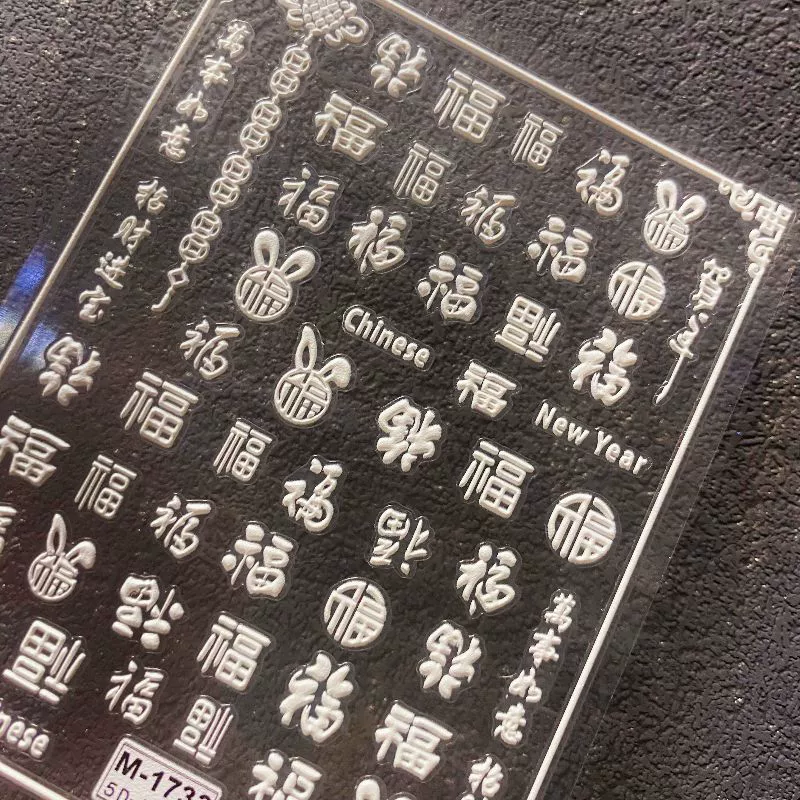 萬事如意
招财进宝
福 福 福
福 福 福 福 福
福 福 福 福 福
福 福 福 福
福 Chinese 福
福 福 福 New Year
福 福 福 福 福
福 福 福 福 福
福 福 福 福 福
福 福 福 福 萬事如意
福 福 福 福
福 福
M-173
5D